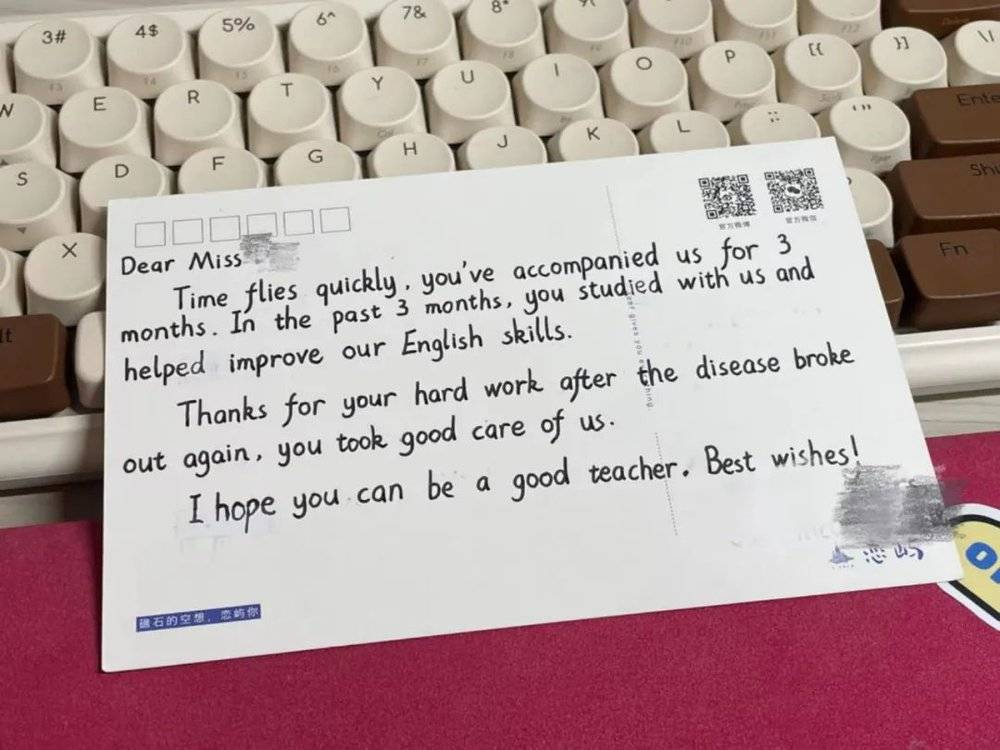 3# 4$ 5% 6^ 7& 8*
W E R T Y U I O P [{ ]} \|
S D F G H J K L ;: '" Enter
X Shi
Fn
官方微博 官方微信
Dear Miss
Time flies quickly, you've accompanied us for 3
months. In the past 3 months, you studied with us and
helped improve our English skills.
Thanks for your hard work after the disease broke
out again, you took good care of us.
I hope you can be a good teacher. Best wishes!
恋屿
礁石的空想，恋屿你